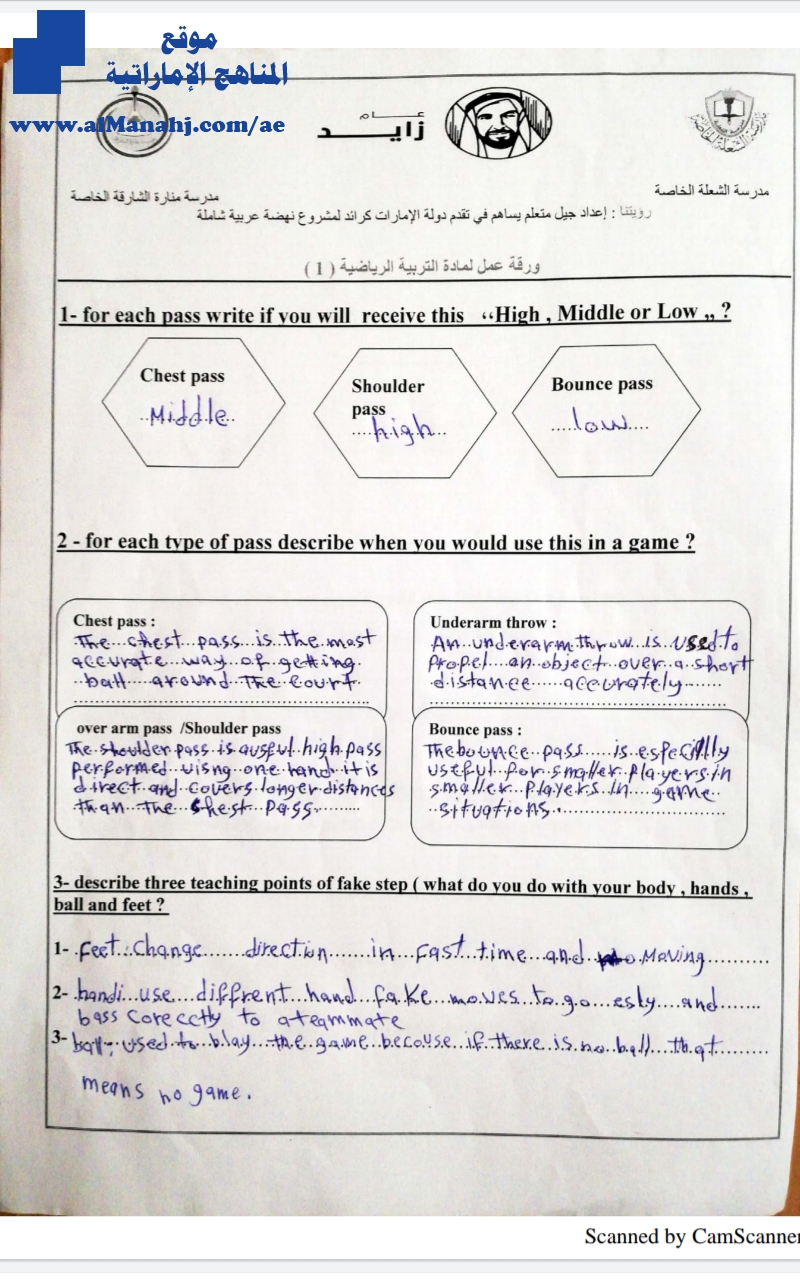 موقع
المناهج الإماراتية
www.alManahj.com/ae
عــام
زايــد
مدرسة الشعلة الخاصة
مدرسة منارة الشارقة الخاصة
رؤيتنا : إعداد جيل متعلم يساهم في تقدم دولة الإمارات كرائد لمشروع نهضة عربية شاملة
ورقة عمل لمادة التربية الرياضية ( 1 )
1- for each pass write if you will receive this “High , Middle or Low „ ?
Chest pass
Middle
Shoulder
pass
high
Bounce pass
low
2 - for each type of pass describe when you would use this in a game ?
Chest pass :
The chest pass is the most
accurate way of getting
ball around The court
Underarm throw :
An underarm throw is used to
Propel an object over a short
distance accurately
over arm pass /Shoulder pass
The shoulder pass is ausful high pass
performed uisng one hand it is
direct and covers longer distances
than the chest pass
Bounce pass :
The bounce pass is especilly
useful for smaller players in
smaller players in game
situations
3- describe three teaching points of fake step ( what do you do with your body , hands ,
ball and feet ?
1- feet: change direction in fast time and moving
2- handi use diffrent hand fake moves to go esly and
bass corecctly to a teammate
3- ball: used to blay the game becouse if there is no ball that
means no game.
Scanned by CamScanner